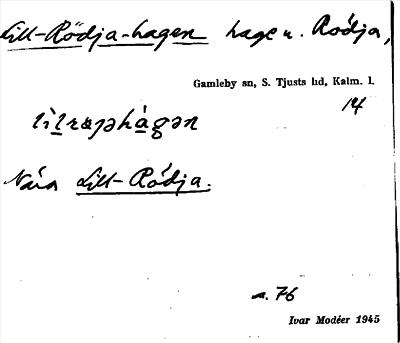 Lill-Rödja-hagen hage u. Rödja,
Gamleby sn, S. Tjusts hd, Kalm. l.
14
Nära Lill-Rödja.
a. 76
Ivar Modéer 1945